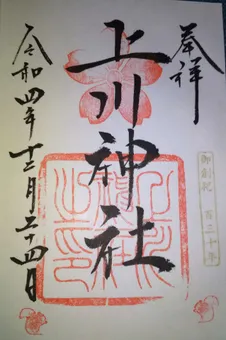 奉拝
上川神社
令和四年十二月二十四日
御創祀 百三十年